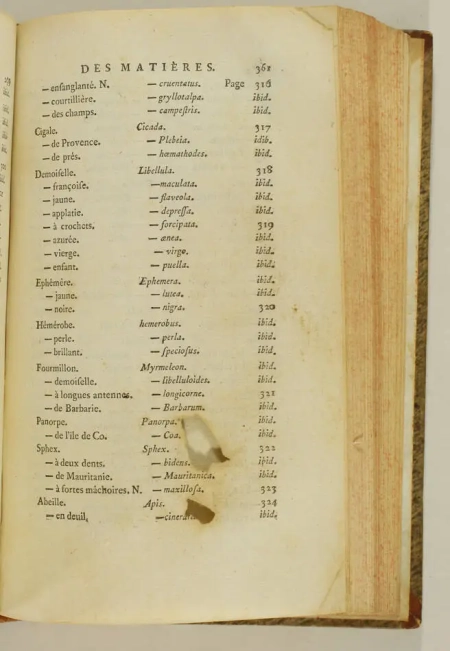 DES MATIÈRES. 361
— enſanglanté. N. — cruentatus. Page 316
— courtillière. — gryllotalpa. ibid.
— des champs. — campeſtris. ibid.
Cigale. Cicada. 317
— de Provence. — Plebeia. idib.
— de près. — hœmathodes. ibid.
Demoiſelle. Libellula. 318
— françoiſe. — maculata. ibid.
— jaune. — flaveola. ibid.
— applatie. — depreſſa. ibid.
— à crochets. — forcipata. 319
— azurée. — ænea. ibid.
— vierge. — virgo. ibid.
— enfant. — puella. ibid.
Ephémère. Ephemera. ibid.
— jaune. — lutea. ibid.
— noire. — nigra. 320
Hémérobe. hemerobus. ibid.
— perle. — perla. ibid.
— brillant. — ſpecioſus. ibid.
Fourmillon. Myrmeleon. ibid.
— demoiſelle. — libelluloides. ibid.
— à longues antennes. — longicorne. 321
— de Barbarie. — Barbarum. ibid.
Panorpe. Panorpa. ibid.
— de l'île de Co. — Coa. ibid.
Sphex. Sphex. 322
— à deux dents. — bidens. ibid.
— de Mauritanie. — Mauritanica. ibid.
— à fortes mâchoires. N. — maxilloſa. 323
Abeille. Apis. 324
— en deuil. — ibid.